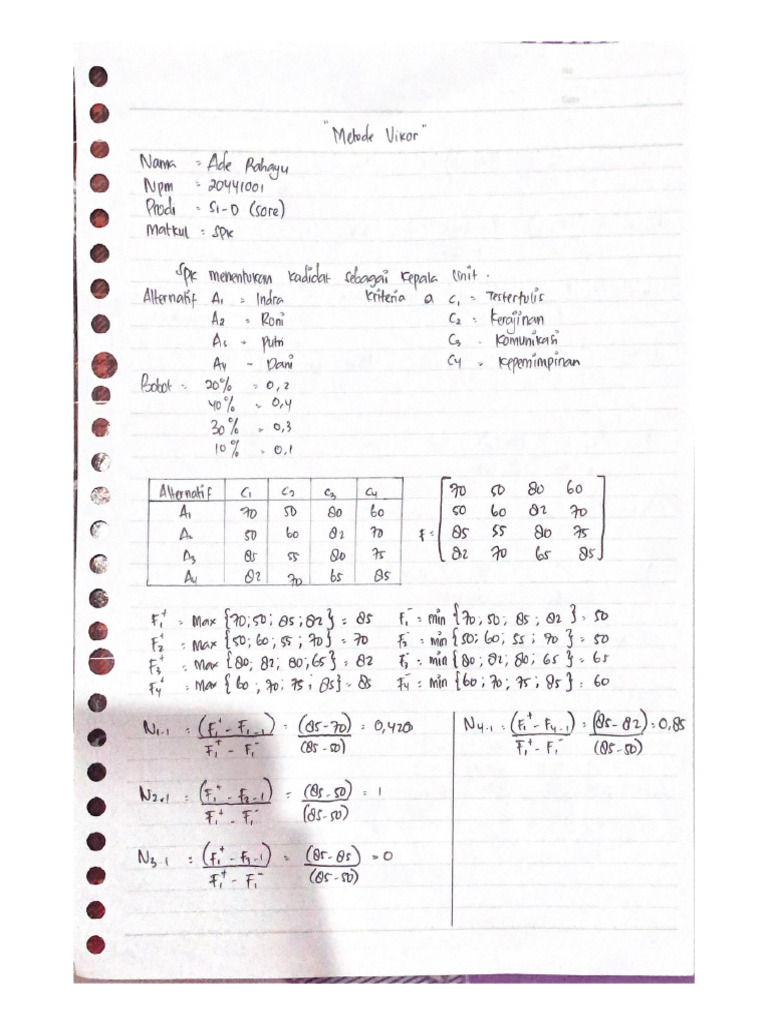 "Metode Vikor"
Nama = Ade Rahayu
Npm = 20441001
Prodi = SI-D (sore)
Matkul = SPK
Spk menentukan kadidat sebagai kepala Unit.
Alternatif A1 = Indra Kriteria C1 = Testertulis
A2 = Roni C2 = Kerajinan
A3 = Putri C3 = Komunikasi
A4 = Dani C4 = Kepemimpinan
Bobot = 20% = 0,2
40% = 0,4
30% = 0,3
10% = 0,1
Alternatif C1 C2 C3 C4
A1 70 50 80 60
A2 50 60 82 70
A3 85 55 80 75
A4 82 70 65 85
F = [70 50 80 60
50 60 82 70
85 55 80 75
82 70 65 85]
F1+ = Max {70;50;85;82} = 85 F1- = min {70;50;85;82} = 50
F2+ = Max {50;60;55;70} = 70 F2- = min {50;60;55;70} = 50
F3+ = Max {80;82;80;65} = 82 F3- = min {80;82;80;65} = 65
F4+ = Max {60;70;75;85} = 85 F4- = min {60;70;75;85} = 60
N1-1 = (F1+ - F1-1) / F1+ - F1- = (85-70) / (85-50) = 0,428
N2-1 = (F1+ - F2-1) / F1+ - F1- = (85-50) / (85-50) = 1
N3-1 = (F1+ - F3-1) / F1+ - F1- = (85-85) / (85-50) = 0
N4-1 = (F1+ - F4-1) / F1+ - F1- = (85-82) / (85-50) = 0,85